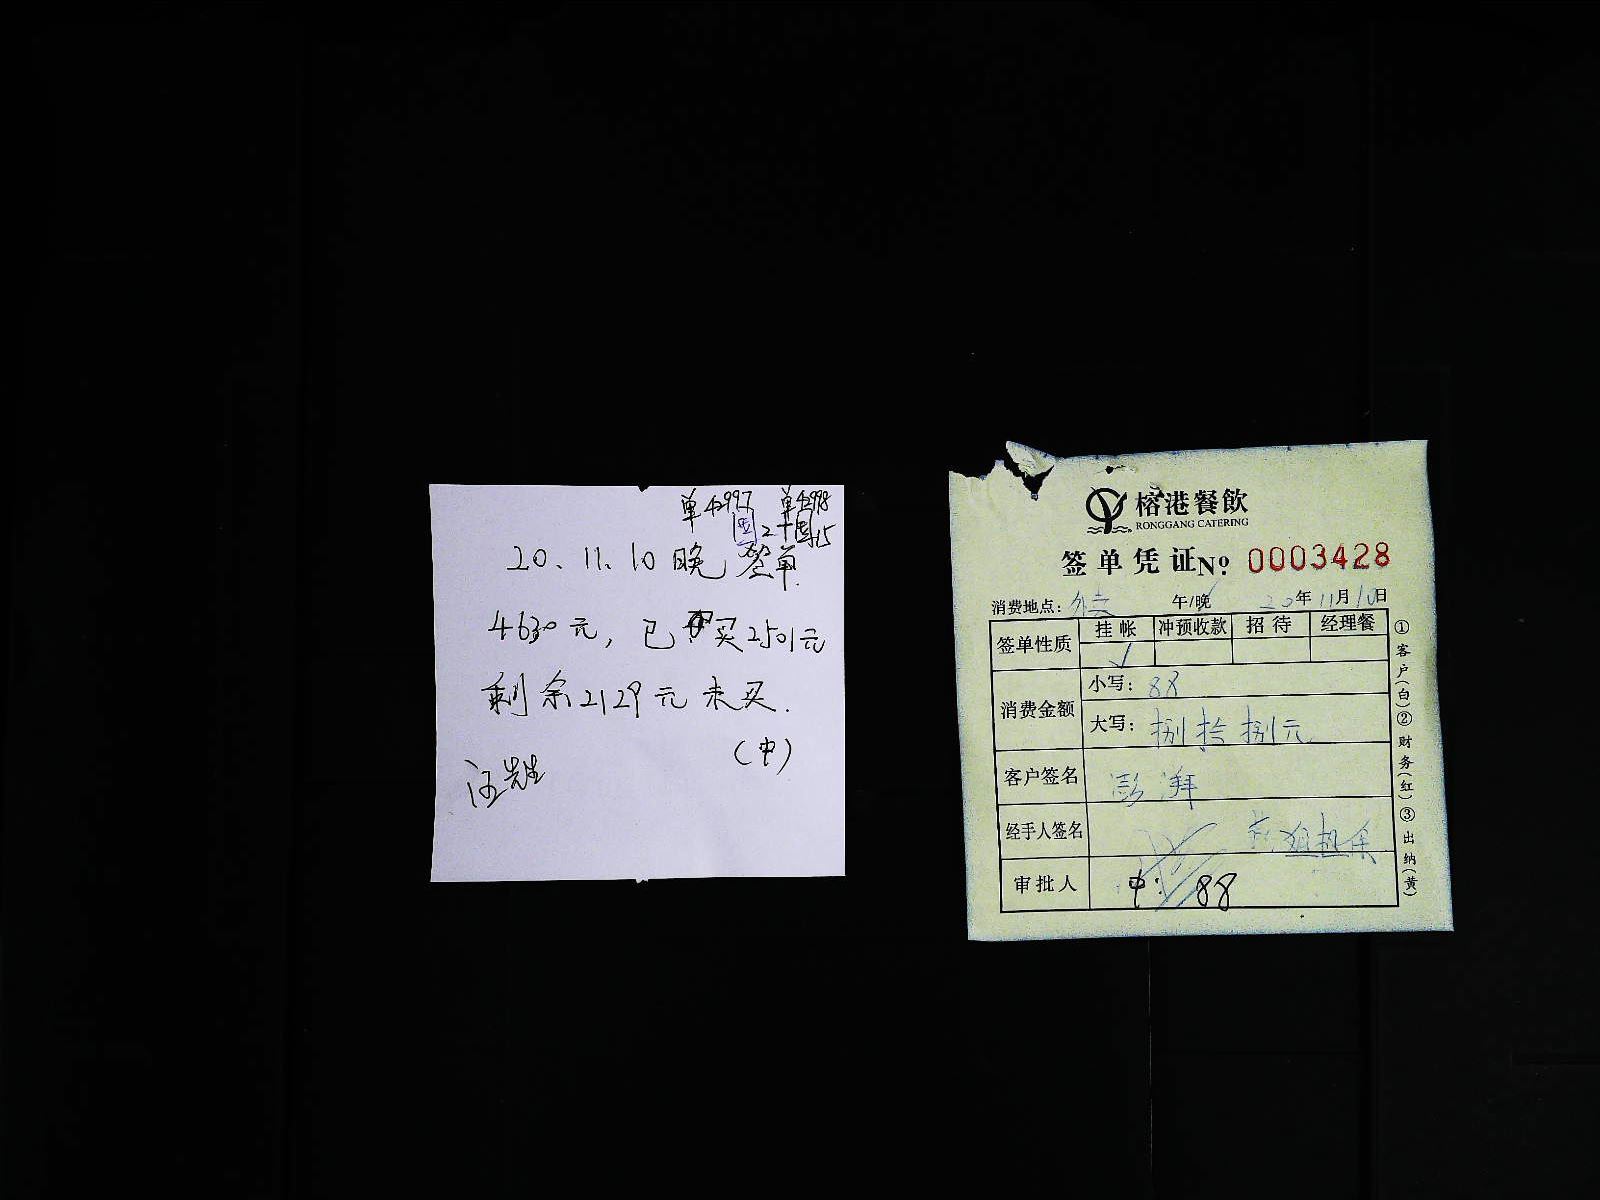 单42997 单42998
20.11.10晚签单.
4630元,已买2501元
剩余2129元未买.
(中)
汪先生
榕港餐飲
RONGGANG CATERING
签单凭证No. 0003428
消费地点:外卖 午/晚 20年11月10日
签单性质 挂帐 冲预收款 招待 经理餐
√
消费金额 小写:88
大写:捌拾捌元
客户签名 澎湃
经手人签名
审批人 中:88
①客户(白)②财务(红)③出纳(黄)